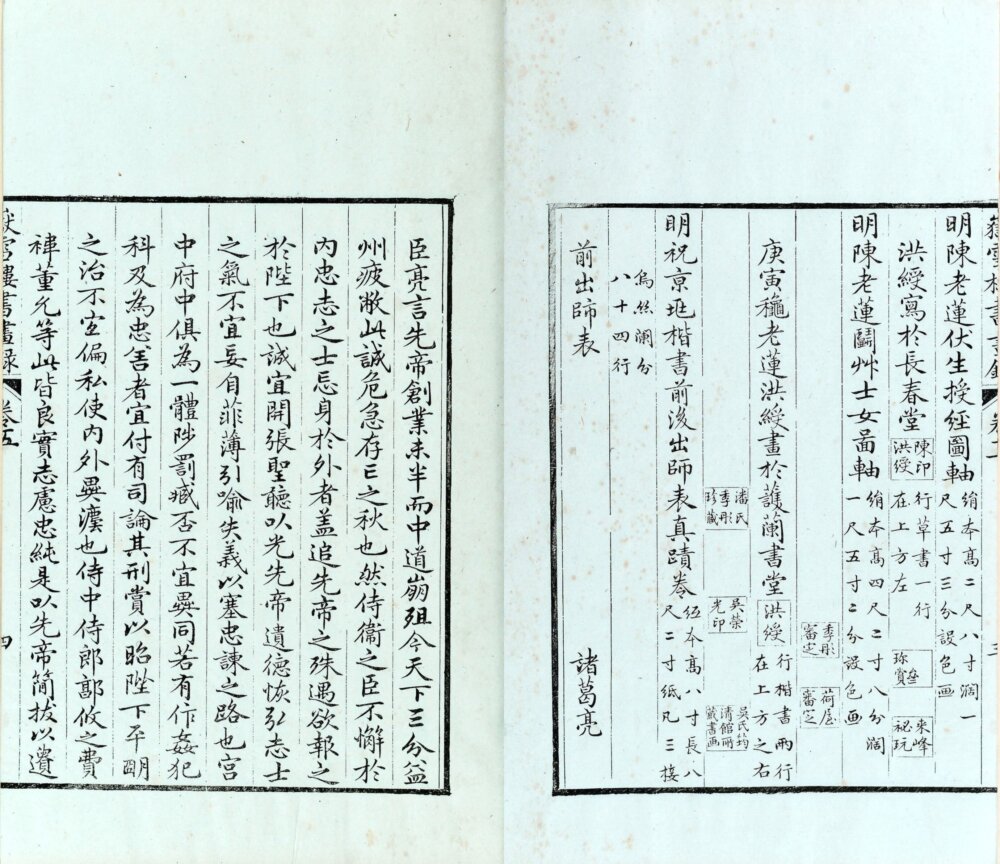 明陳老蓮伏生授經圖軸 絹本高二尺八寸濶一
尺五寸三分設色画
洪綬寫於長春堂 陳印洪綬 行草書一行
在上方左
珍賞 來峰祕玩
明陳老蓮鬭艸士女啚軸 絹本高四尺二寸八分濶
一尺五寸二分設色画
季彤審定 荷屋審定
庚寅穐老蓮洪綬畫於護蘭書堂 洪綬 行楷書兩行
在上方之右
潘氏季彤珍藏 吳榮光印 吳氏筠清館所藏書画
明祝京兆楷書前後出師表真蹟卷 帋本高八寸長八
尺二寸紙凡三接
烏絲闌分
八十四行
前出師表 諸葛亮
臣亮言先帝創業未半而中道崩殂今天下三分益
州疲敝此誠危急存亡之秋也然侍衞之臣不懈於
內忠志之士忘身於外者盖追先帝之殊遇欲報之
於陛下也誠宜開張聖聽以光先帝遺德恢弘志士
之氣不宜妄自菲薄引喻失義以塞忠諫之路也宮
中府中俱為一體陟罰臧否不宜異同若有作姦犯
科及為忠善者宜付有司論其刑賞以昭陛下平明
之治不宜偏私使內外異灋也侍中侍郎郭攸之費
禕董允等此皆良實志慮忠純是以先帝簡拔以遺
嶽雪樓書畫錄 卷五 四